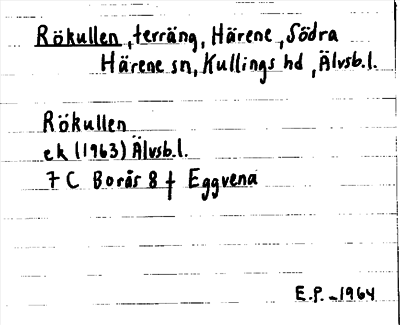 Rökullen, terräng, Härene, Södra
Härene sn, Kullings hd, Älvsb.l.
Rökullen
ek (1963) Älvsb.l.
7 C Borås 8 f Eggvena
E.P. -1964